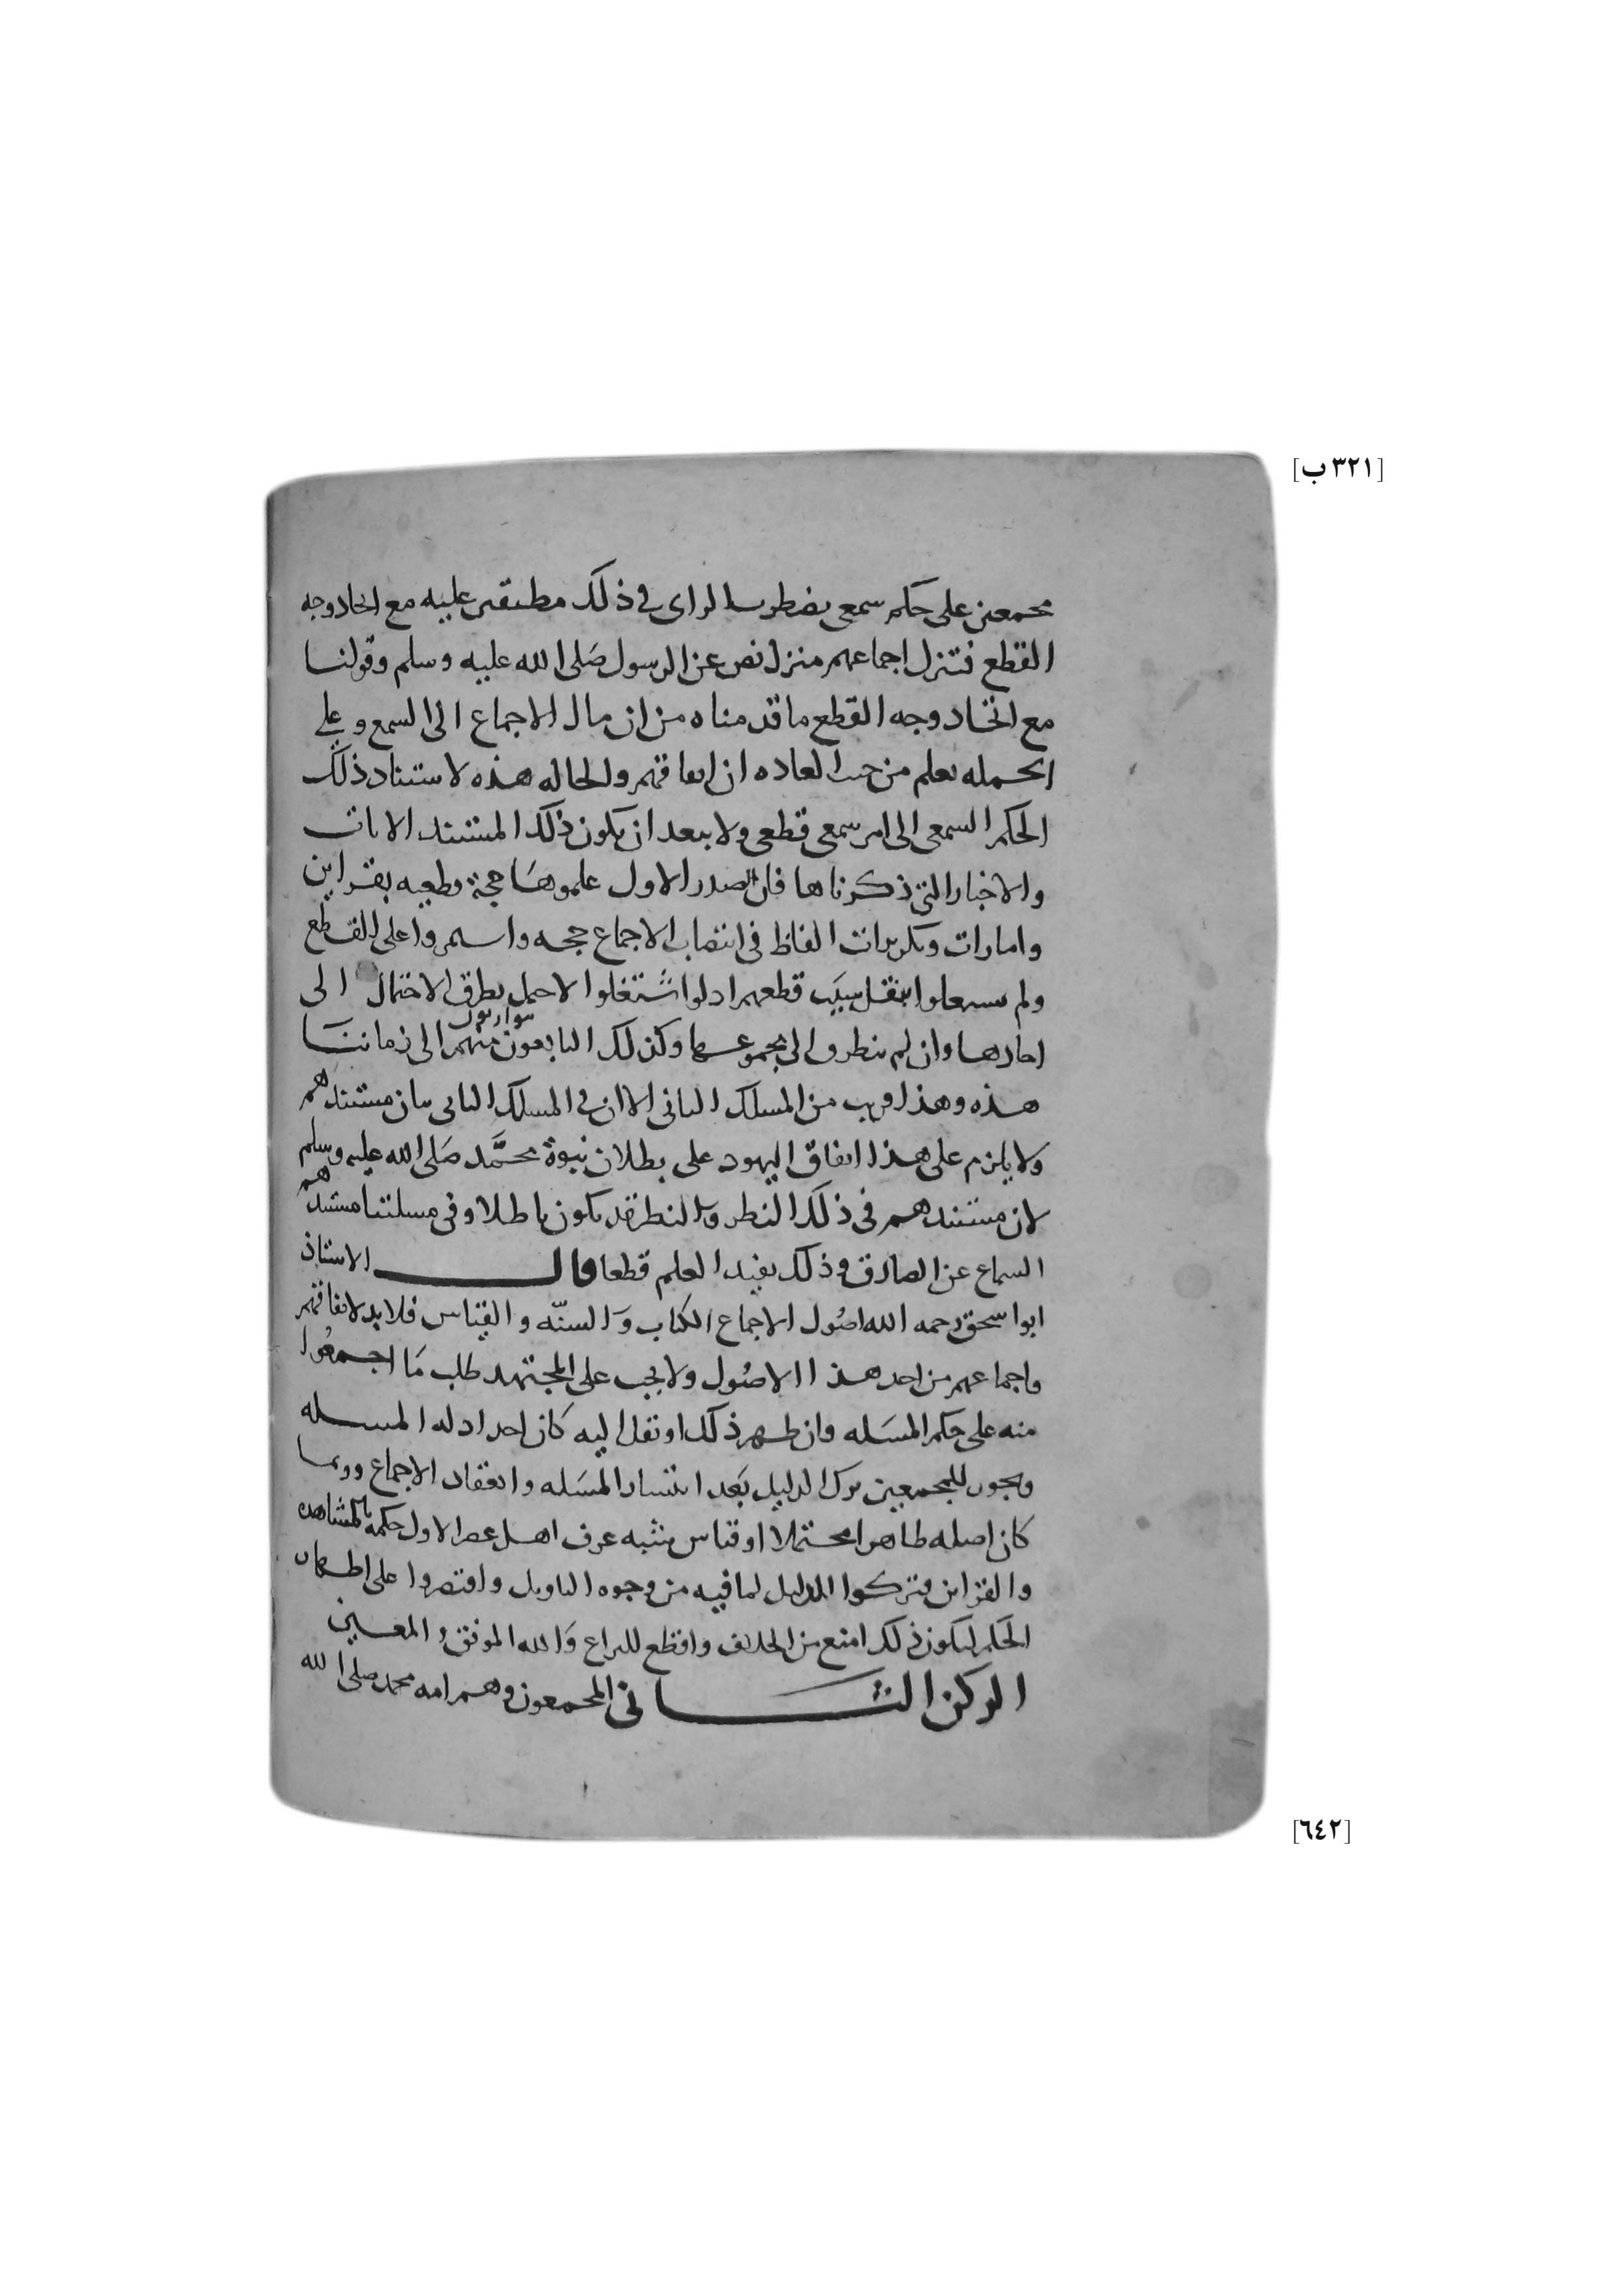 [٣٢١ ب]
مجمعين على حكم سمعي يضطرب الراى في ذلك مطبقين عليه مع اتحاد وجه
القطع فتنزل اجماعهم منزل نص عن الرسول صلى الله عليه وسلم وقولنا
مع اتحاد وجه القطع ما قدمناه من ان مال الاجماع الى السمع وعلى
الجمله نعلم من حيث العاده ان اتفاقهم والحاله هذه لاستناد ذلك
الحكم السمعى الى امر سمعى قطعى ولا يبعد ان يكون ذلك المستند الايات
والاخبار التى ذكرناها فان الصدر الاول علموها حجة قطعيه بقراين
وامارات وتكريرات الفاظ فى انتصاب الاجماع حجه واستمروا على القطع
ولم يشتغلوا بنقل سبب قطعهم اذ لو اشتغلوا لاحتمل تطرق الاحتمال الى
احادها وان لم ينظروا الى مجموعها وكذلك التابعون منهم الى زماننا
هذه وهذا قريب من المسلك الثانى الا ان في المسلك الثانى بيان مستندهم
ولا يلزم على هذا اتفاق اليهود على بطلان نبوة محمد صلى الله عليه وسلم
لان مستندهم فى ذلك النظر والنظر قد يكون باطلا وفى مسلتنا مستندهم
السماع عن الصادق وذلك يفيد العلم قطعا قال الاستاذ
ابو اسحق رحمه الله اصول الاجماع الكتاب والسنه والقياس فلا بد لاتفاقهم
واجماعهم من احد هذا الاصول ولا يجب على المجتهد طلب ما اجمعوا
منه على حكم المسله وان ظهر ذلك او نقل اليه كان احد ادله المسله
ويجوز للمجمعين ترك الدليل بعد انتشار المسله وانعقاد الاجماع وربما
كان اصله ظاهرا محتملا او قياس شبه عرف اهل عصر الاول حكمه بالمشاهده
والقراين فتركوا الدليل لما فيه من وجوه التاويل واقتصروا على اظهار
الحكم ليكون ذلك امنع من الخلاف واقطع للنزاع والله الموفق والمعين
الركن الثانى المجمعون وهم امه محمد صلى الله
[٦٤٢]